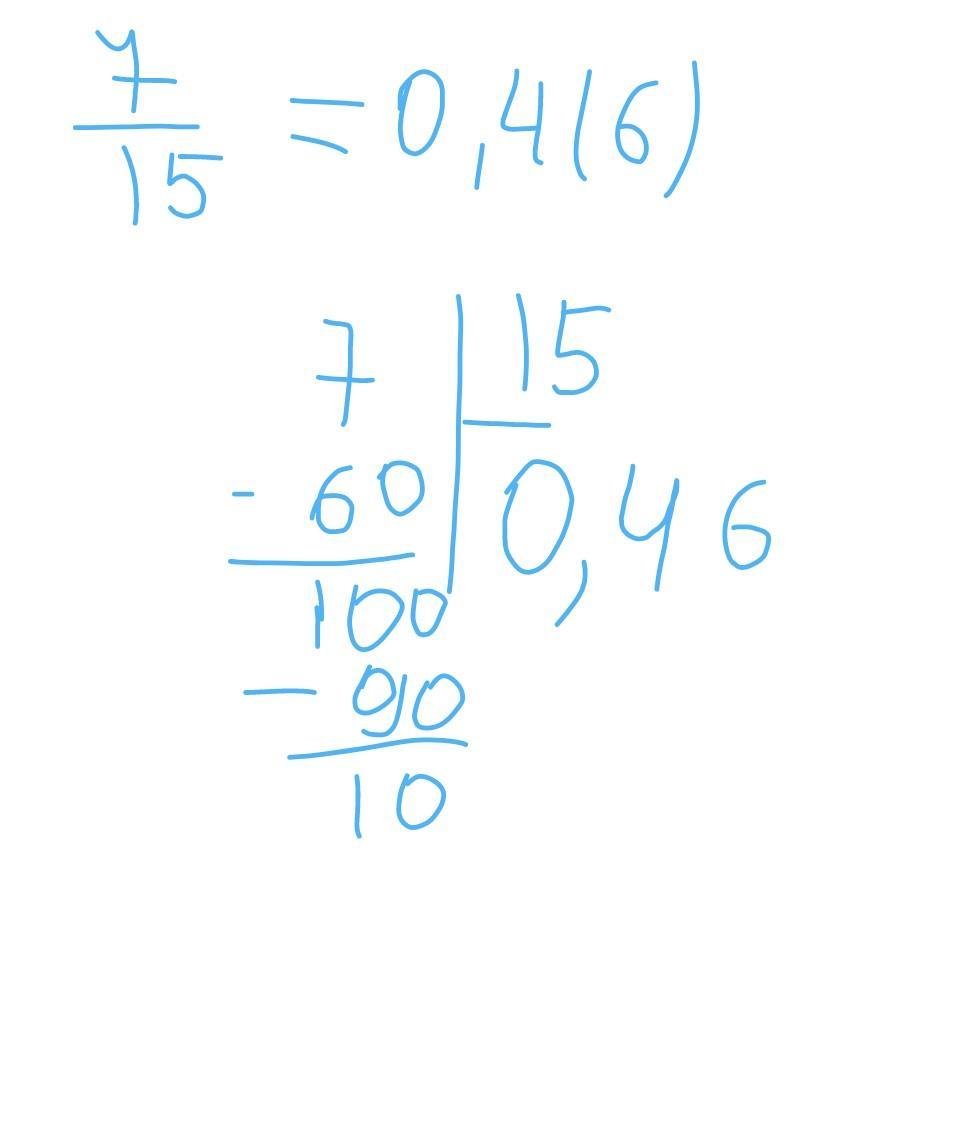 7/15 = 0,4(6)
7 | 15
- 60 | 0,46
100
- 90
10